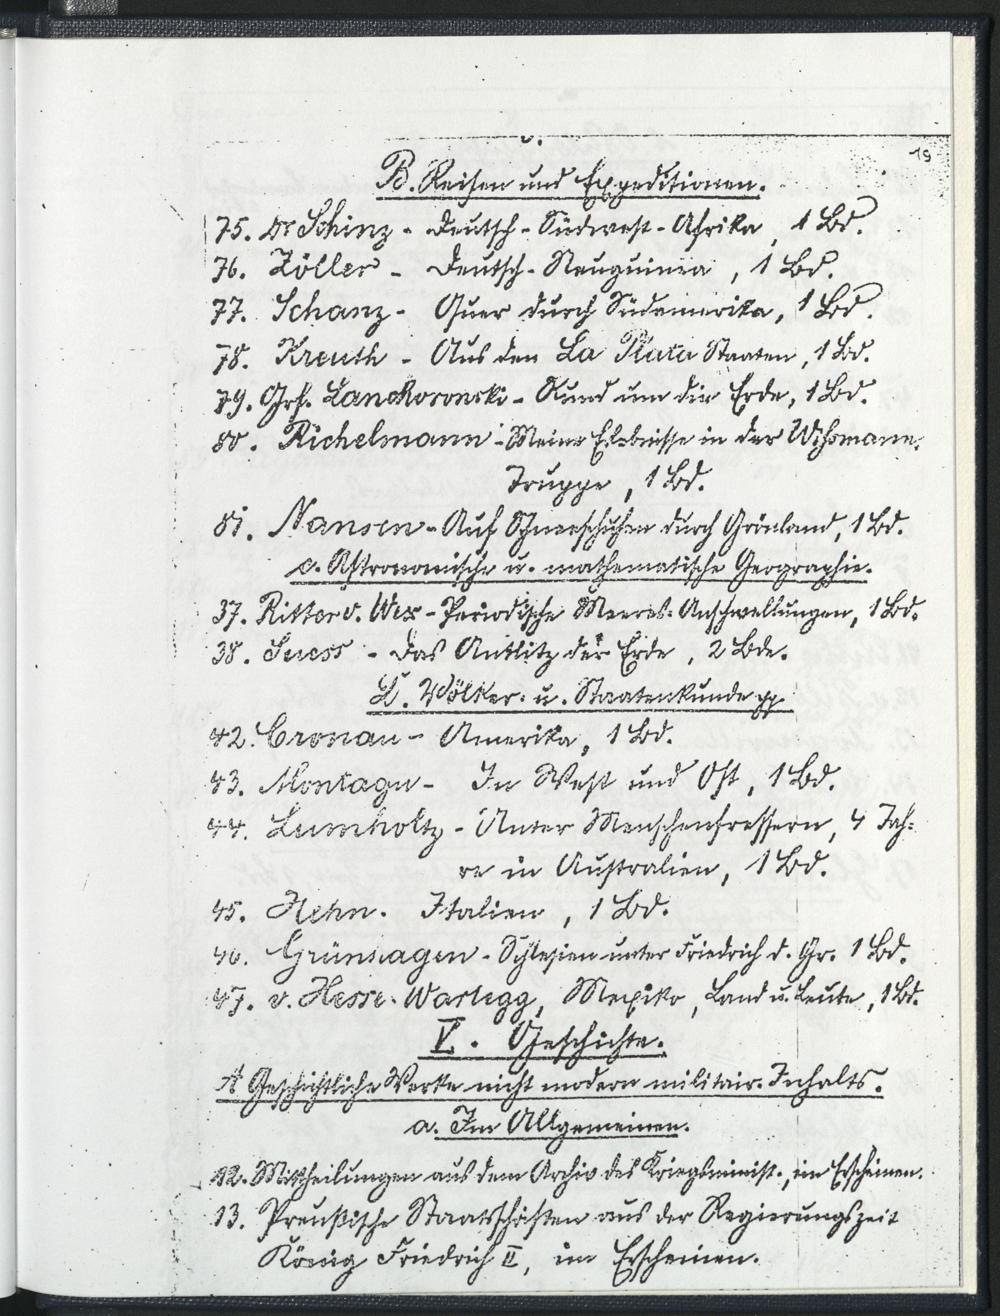 19
B. Reisen und Expeditionen.
75. Dr Schinz - Deutsch-Südwest-Afrika, 1 Bd.
76. Zöller - Deutsch-Neuguinea, 1 Bd.
77. Schanz - Quer durch Südamerika, 1 Bd.
78. Kreuth - Aus den La Plata Staaten, 1 Bd.
79. Grf. Lanckoronski - Rund um die Erde, 1 Bd.
80. Richelmann - Meine Erlebnisse in der Wißmann-
Truppe, 1 Bd.
81. Nansen - Auf Schneeschuhen durch Grönland, 1 Bd.
c. Astronomische u. mathematische Geographie.
37. Ritter v. Wex - Periodische Meeres-Anschwellungen, 1 Bd.
38. Suess - Das Antlitz der Erde, 2 Bde.
Völker- u. Staatenkunde pp.
42. Cronau - Amerika, 1 Bd.
43. Montagu - In West und Ost, 1 Bd.
44. Lumholtz - Unter Menschenfressern, 4 Jah-
re in Australien, 1 Bd.
45. Hehn. Italien, 1 Bd.
46. Grünhagen - Schlesien unter Friedrich d. Gr. 1 Bd.
47. v. Hesse-Wartegg, Mexiko, Land u. Leute, 1 Bd.
V. Geschichte.
A Geschichtliche Werke nicht modern militair. Inhalts.
a. Im Allgemeinen.
12. Mittheilungen aus dem Archiv des Kriegsminist., im Erscheinen.
13. Preußische Staatsschriften aus der Regierungszeit
König Friedrich II, im Erscheinen.